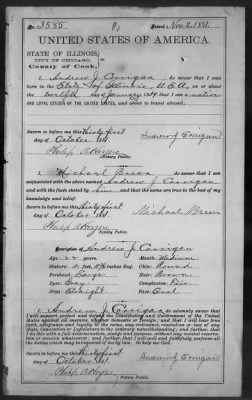 No. 3585 Issued Nov 2 1881.
UNITED STATES OF AMERICA.
STATE OF ILLINOIS,
CITY OF CHICAGO,
County of Cook,
I, Andrew J. Corrigan do swear that I was
born in the State of Illinois, U.S.A., on or about the
twelfth day of January 1859, that I am a native
AND LOYAL CITIZEN OF THE UNITED STATES, and about to travel abroad.
Sworn to before me this thirty first
day of October 1881.
Andrew J Corrigan
Notary Public.
I, Michael Breen do swear that I am
acquainted with the above named Andrew J. Corrigan
and with the facts stated by him, and that the same are true to the best of my
knowledge and belief.
Sworn to before me this thirty first
day of October 1881.
Michael Breen
Notary Public.
Description of Andrew J. Corrigan
Age: 22 years Mouth: Medium
Stature: 5 feet, Inches Eng. Chin: Round
Forehead: Large Hair: Brown
Eyes: Gray Complexion: Fair
Nose: Straight Face: Oval
I, Andrew J. Corrigan do solemnly swear that I
will support, protect and defend the Constitution and Government of the United
States against all enemies, whether domestic or foreign; and that I will bear true
faith, allegiance and loyalty to the same, any ordinance, resolution or law of any
State, Convention or Legislature to the contrary notwithstanding; and further, that I
do this with a full determination, pledge and purpose, without any mental reservation
or evasion whatsoever; and further, that I will well and faithfully perform all
the duties which may be required of me by law. So help me God.
Sworn to before me this thirty first
day of October 1881
Andrew J Corrigan
Notary Public.